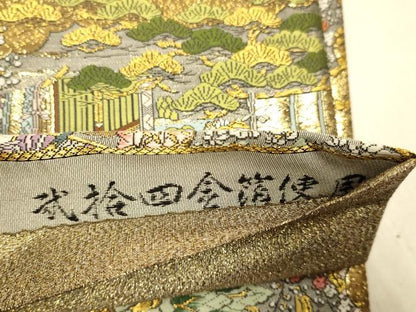 弐拾四金箔使用